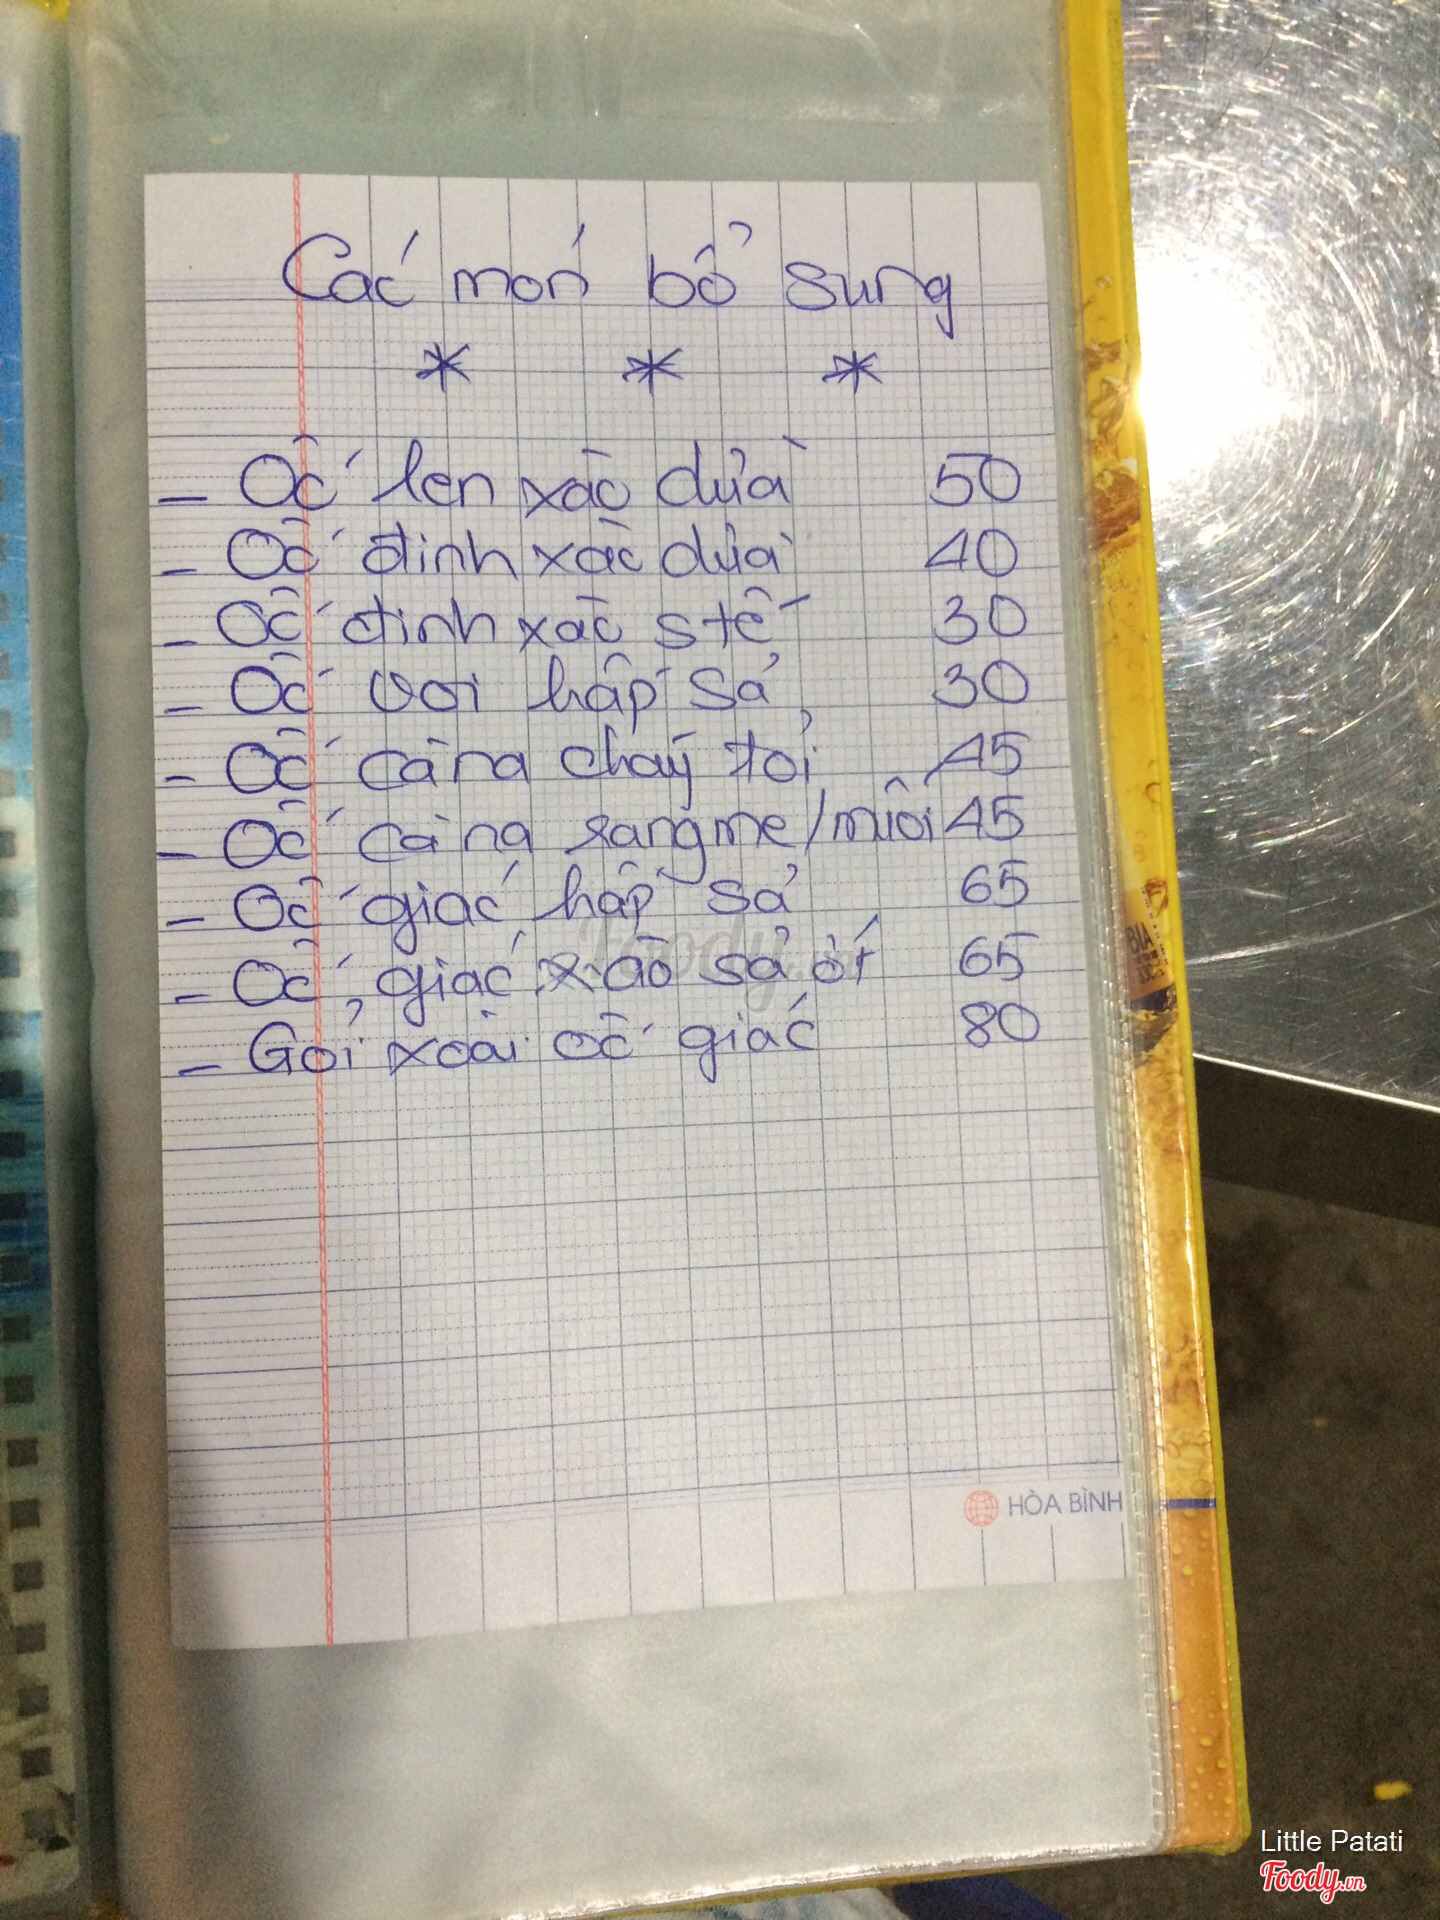 Các món bổ sung
* * *
- Ốc len xào dừa 50
- Ốc đinh xào dừa 40
- Ốc đinh xào s tế 30
- Ốc voi hấp sả 30
- Ốc cà na cháy tỏi 45
- Ốc cà na rang me/muối 45
- Ốc giác hấp sả 65
- Ốc giác xào sả ớt 65
- Gỏi xoài ốc giác 80
Foody.vn
BIA
HÒA BÌNH
Little Patati
Foody.vn